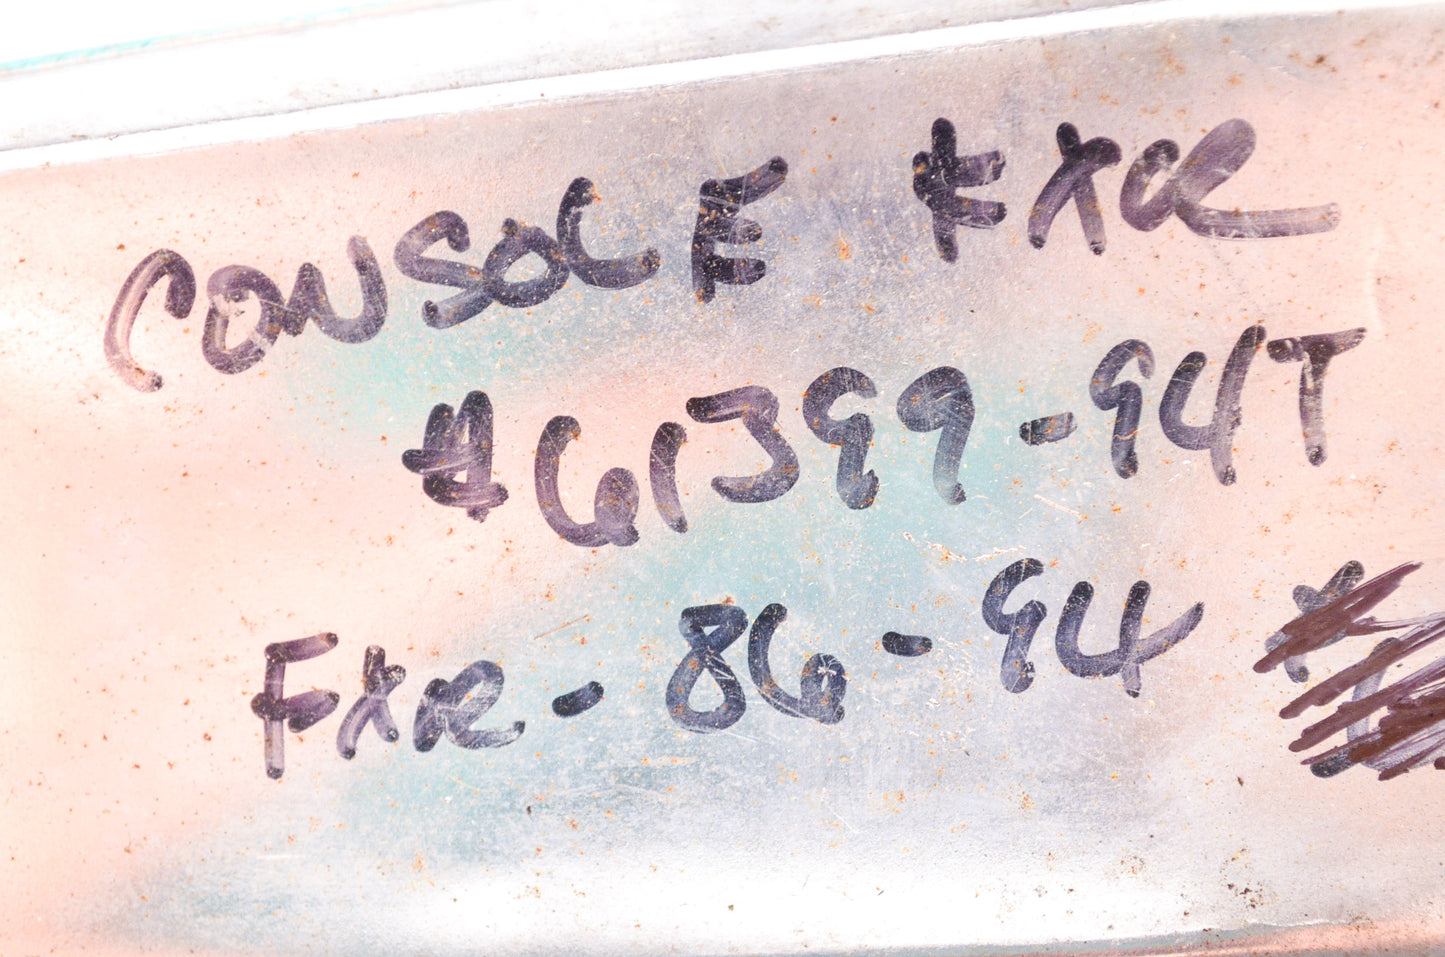 CONSOLE FXR
#61399-94T
FXR-86-94